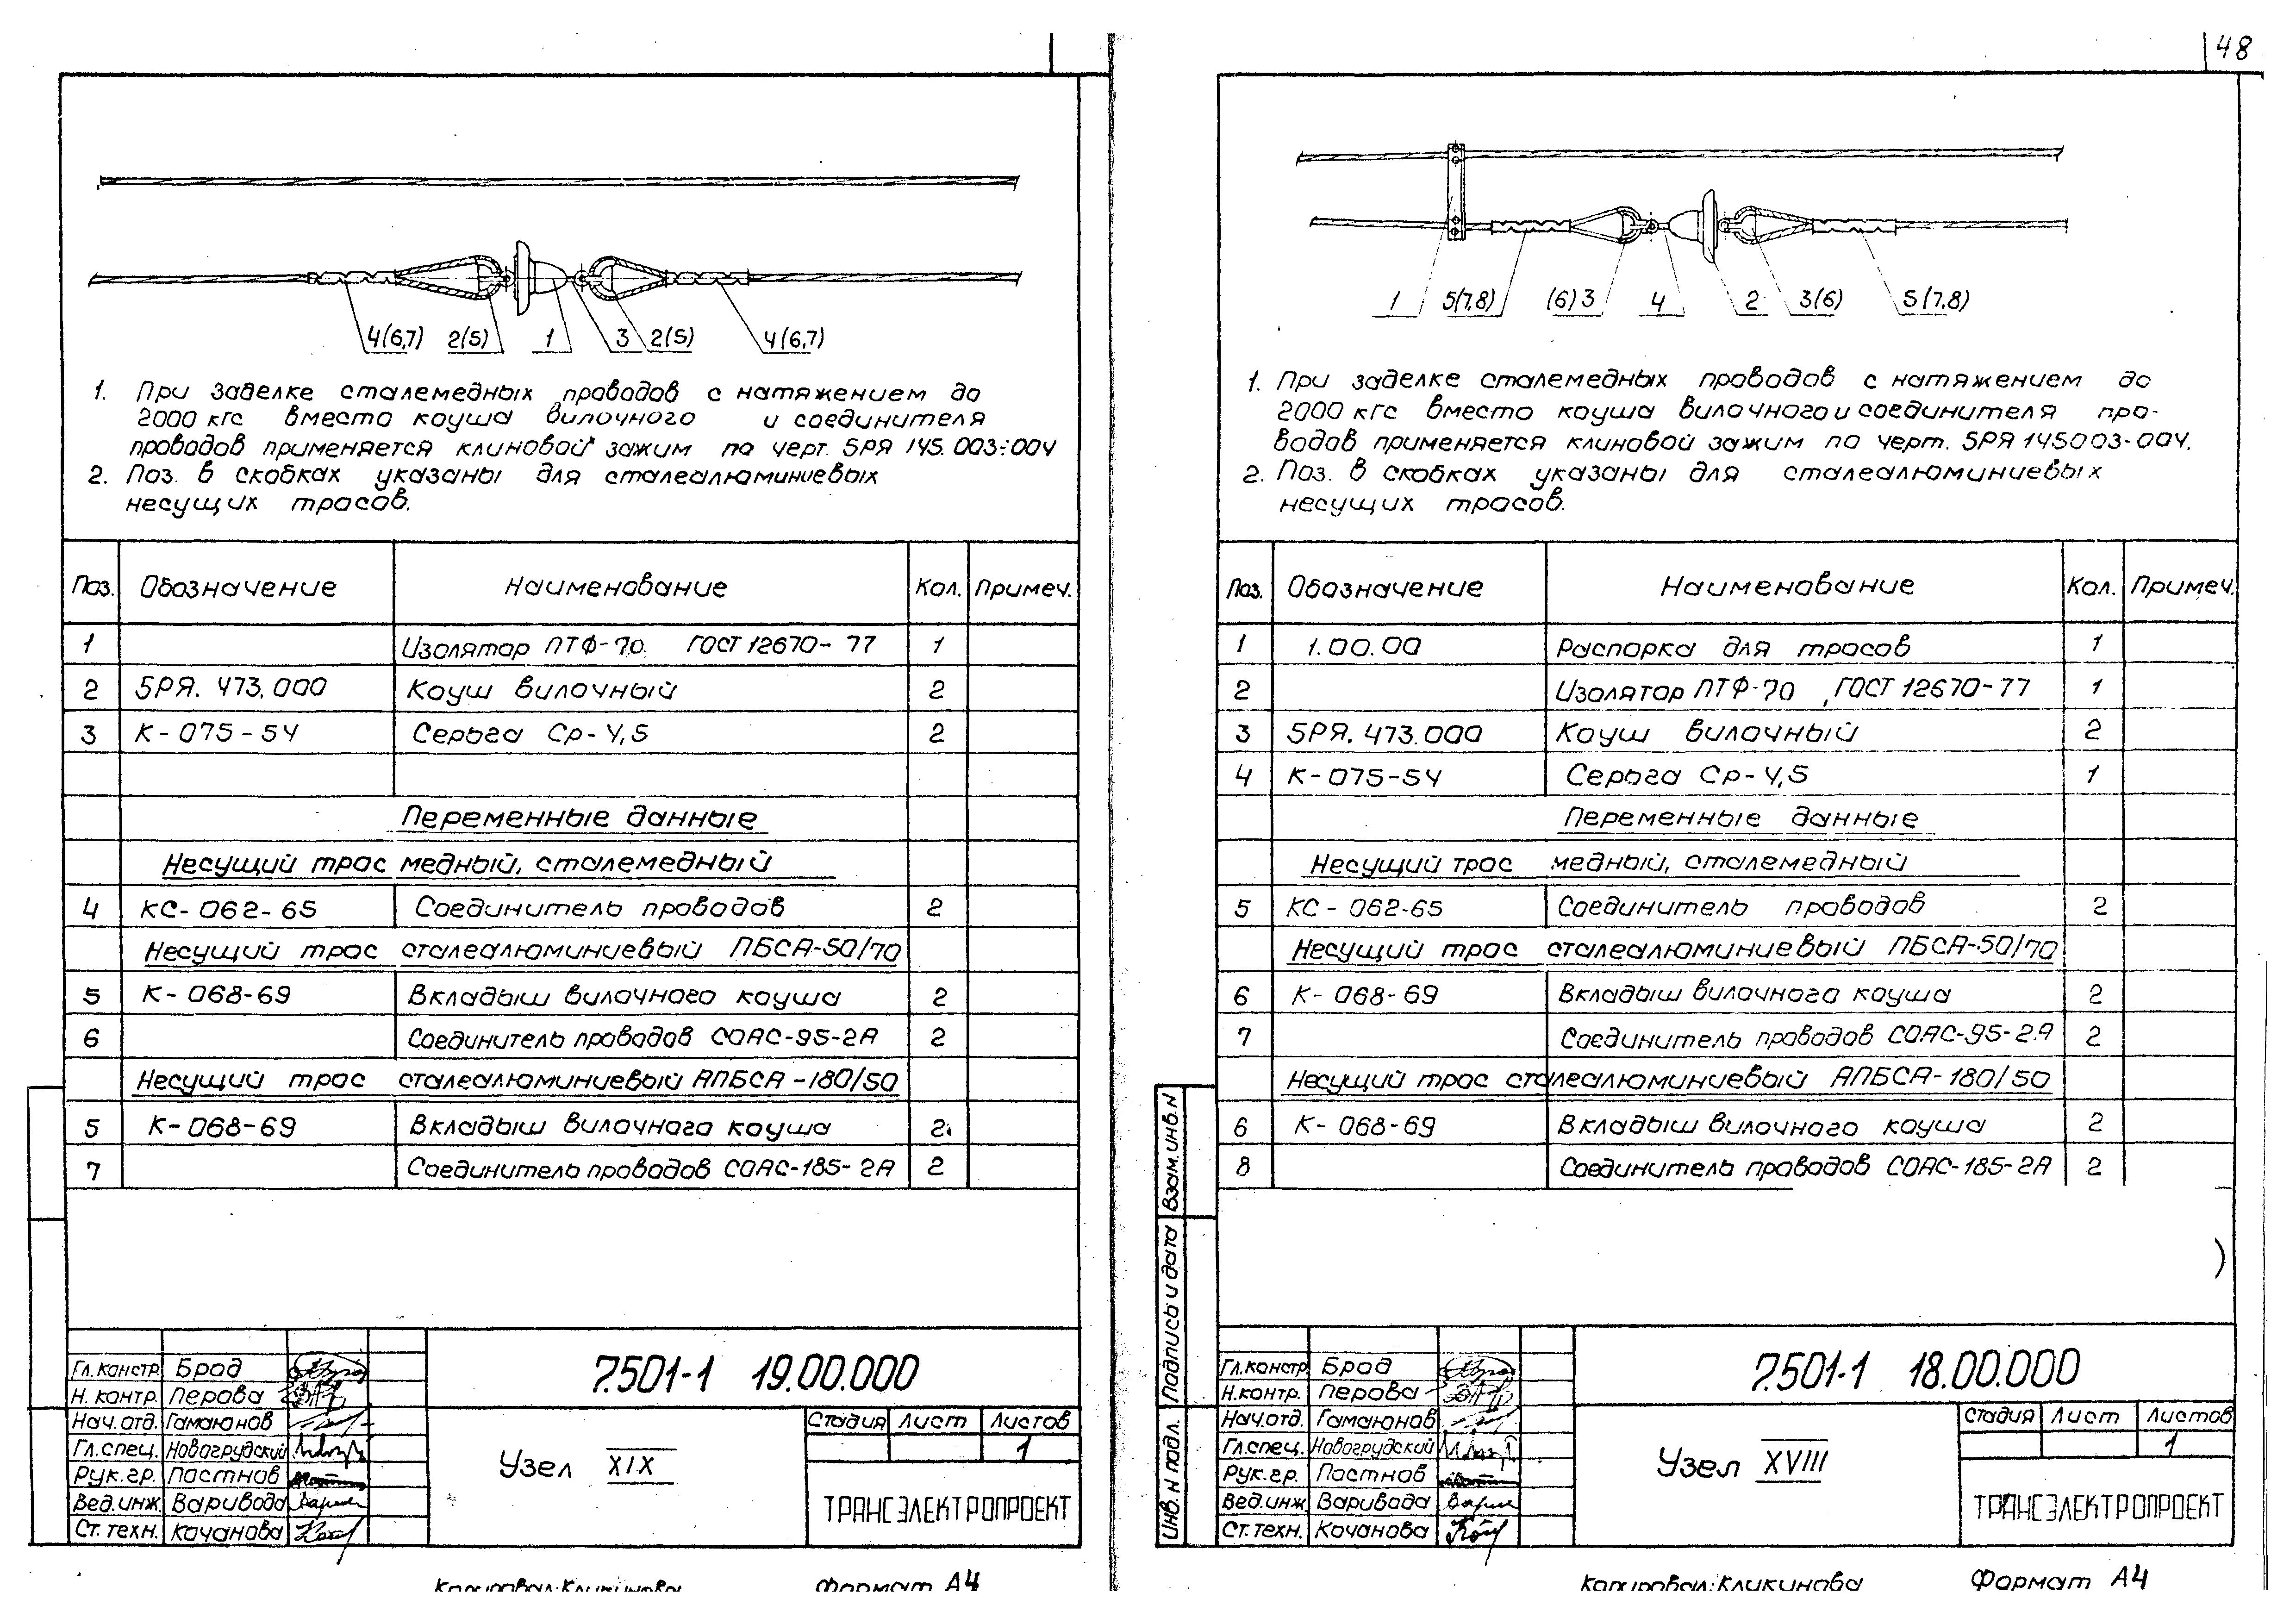 4(6,7) 2(5) 1 3 2(5) 4(6,7)
1. При заделке сталемедных проводов с натяжением до
2000 кгс вместо коуша вилочного и соединителя
проводов применяется клиновой зажим по черт. 5РЯ 145.003÷004
2. Поз. в скобках указаны для сталеалюминиевых
несущих тросов.
Поз. Обозначение Наименование Кол. Примеч.
1 Изолятор ПТФ-70 ГОСТ 12670-77 1
2 5РЯ.473.000 Коуш вилочный 2
3 К-075-54 Серьга Ср-4,5 2
Переменные данные
Несущий трос медный, сталемедный
4 КС-062-65 Соединитель проводов 2
Несущий трос сталеалюминиевый ПБСА-50/70
5 К-068-69 Вкладыш вилочного коуша 2
6 Соединитель проводов СОАС-95-2А 2
Несущий трос сталеалюминиевый АПБСА-180/50
5 К-068-69 Вкладыш вилочного коуша 2
7 Соединитель проводов СОАС-185-2А 2
Гл.констр. Брод
Н. контр. Перова
Нач.отд. Гамаюнов
Гл.спец. Новогрудский
Рук.гр. Постнов
Вед.инж. Варивода
Ст.техн. Кочанова
7.501-1 19.00.000
Узел XIX
Стадия Лист Листов
1
ТРАНСЭЛЕКТРОПРОЕКТ
Копировал: Кликинова Формат А4
48
1 5(7,8) (6)3 4 2 3(6) 5(7,8)
1. При заделке сталемедных проводов с натяжением до
2000 кгс вместо коуша вилочного и соединителя про-
водов применяется клиновой зажим по черт. 5РЯ 145003-004.
2. Поз. в скобках указаны для сталеалюминиевых
несущих тросов.
Поз. Обозначение Наименование Кол. Примеч.
1 1.00.00 Распорка для тросов 1
2 Изолятор ПТФ-70 ГОСТ 12670-77 1
3 5РЯ.473.000 Коуш вилочный 2
4 К-075-54 Серьга Ср-4,5 1
Переменные данные
Несущий трос медный, сталемедный
5 КС-062-65 Соединитель проводов 2
Несущий трос сталеалюминиевый ПБСА-50/70
6 К-068-69 Вкладыш вилочного коуша 2
7 Соединитель проводов СОАС-95-2А 2
Несущий трос сталеалюминиевый АПБСА-180/50
6 К-068-69 Вкладыш вилочного коуша 2
8 Соединитель проводов СОАС-185-2А 2
Взам.инв.N
Подпись и дата
Инв.N подл.
Гл.констр. Брод
Н.контр. Перова
Нач.отд. Гамаюнов
Гл.спец. Новогрудский
Рук.гр. Постнов
Вед.инж. Варивода
Ст.техн. Кочанова
7.501-1 18.00.000
Узел XVIII
Стадия Лист Листов
1
ТРАНСЭЛЕКТРОПРОЕКТ
Копировал: Кликинова Формат А4